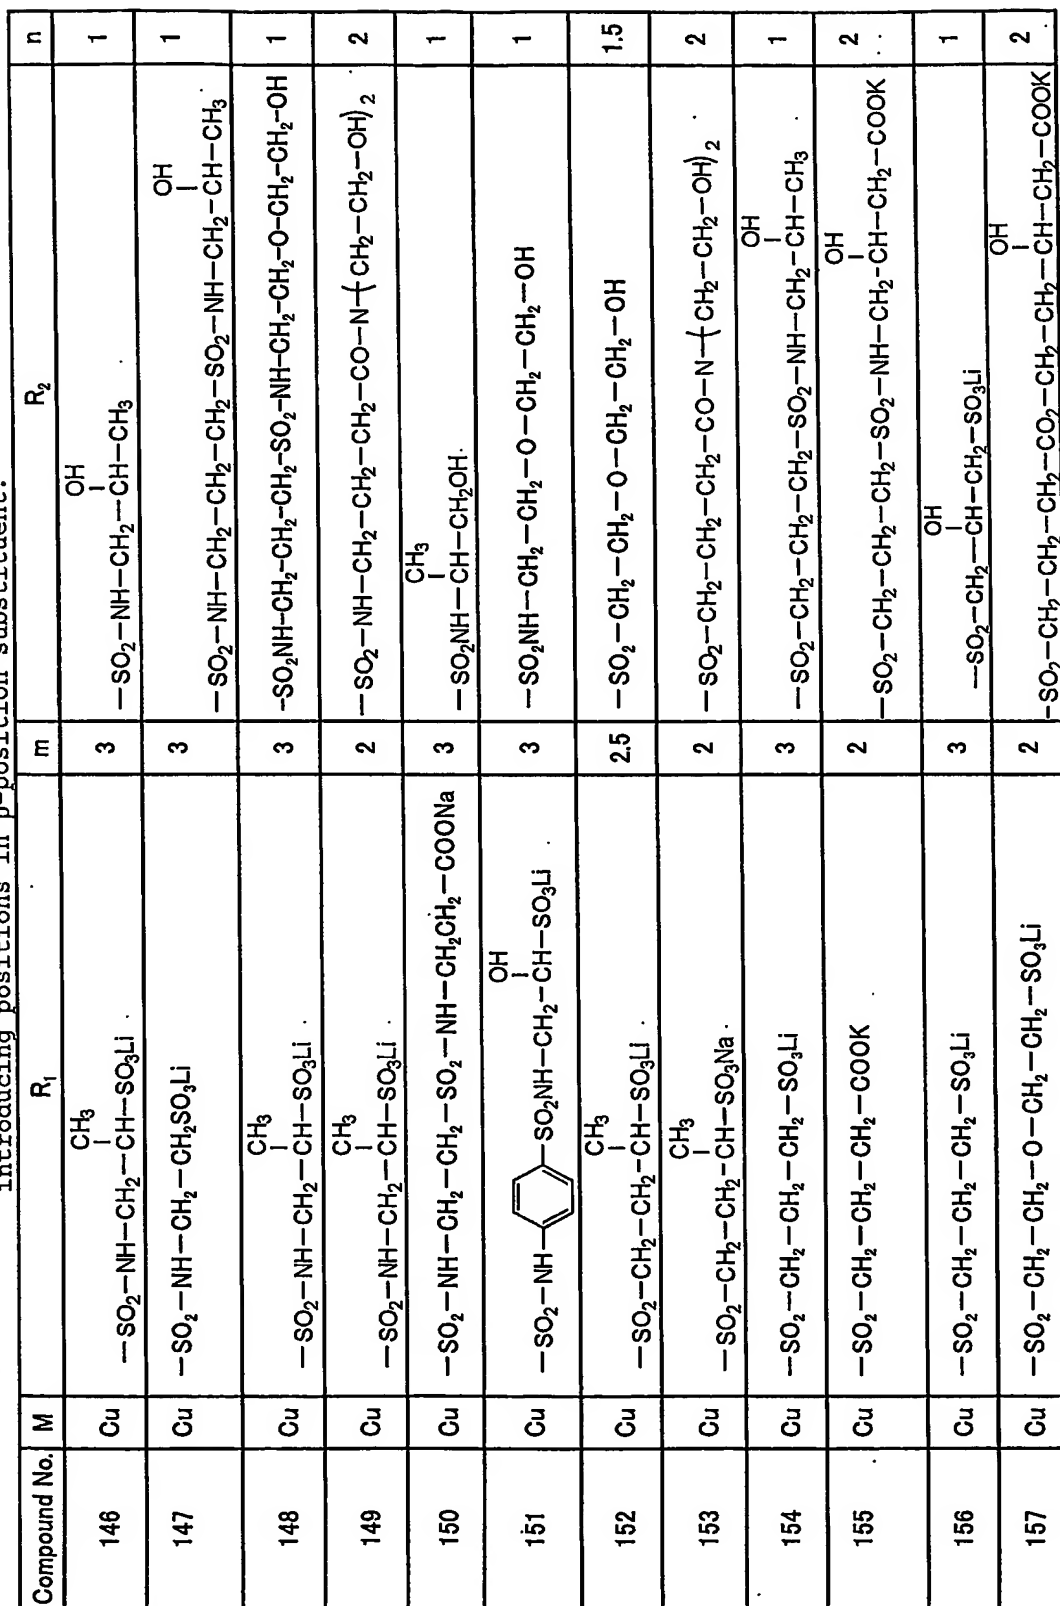 introducing positions in β-position substituent.
Compound No. M R₁ m R₂ n
146 Cu —SO₂—NH—CH₂—CH(CH₃)—SO₃Li 3 —SO₂—NH—CH₂—CH(OH)—CH₃ 1
147 Cu —SO₂—NH—CH₂—CH₂SO₃Li 3 —SO₂—NH—CH₂—CH₂—CH₂—SO₂—NH—CH₂—CH(OH)—CH₃ 1
148 Cu —SO₂—NH—CH₂—CH(CH₃)—SO₃Li 3 -SO₂NH—CH₂-CH₂-CH₂-SO₂-NH-CH₂-CH₂-O-CH₂-CH₂-OH 1
149 Cu —SO₂—NH—CH₂—CH(CH₃)—SO₃Li 2 —SO₂—NH—CH₂—CH₂—CH₂—CO—N—(CH₂—CH₂—OH)₂ 2
150 Cu —SO₂—NH—CH₂—CH₂—SO₂—NH—CH₂CH₂—COONa 3 —SO₂NH—CH(CH₃)—CH₂OH 1
151 Cu —SO₂—NH— —SO₂NH—CH₂—CH(OH)—SO₃Li 3 —SO₂NH—CH₂—CH₂—O—CH₂—CH₂—OH 1
152 Cu —SO₂—CH₂—CH₂—CH(CH₃)—SO₃Li 2.5 —SO₂—CH₂—CH₂—O—CH₂—CH₂—OH 1.5
153 Cu —SO₂—CH₂—CH₂—CH(CH₃)—SO₃Na 2 —SO₂—CH₂—CH₂—CH₂—CO—N—(CH₂—CH₂—OH)₂ 2
154 Cu —SO₂—CH₂—CH₂—CH₂—SO₃Li 3 —SO₂—CH₂—CH₂—CH₂—SO₂—NH—CH₂—CH(OH)—CH₃ 1
155 Cu —SO₂—CH₂—CH₂—CH₂—COOK 2 —SO₂—CH₂—CH₂—CH₂—SO₂—NH—CH₂—CH(OH)—CH₂—COOK 2
156 Cu —SO₂—CH₂—CH₂—CH₂—SO₃Li 3 —SO₂—CH₂—CH(OH)—CH₂—SO₃Li 1
157 Cu —SO₂—CH₂—CH₂—O—CH₂—CH₂—SO₃Li 2 —SO₂—CH₂—CH₂—CH₂—CO₂—CH₂—CH₂—CH(OH)—CH₂—COOK 2